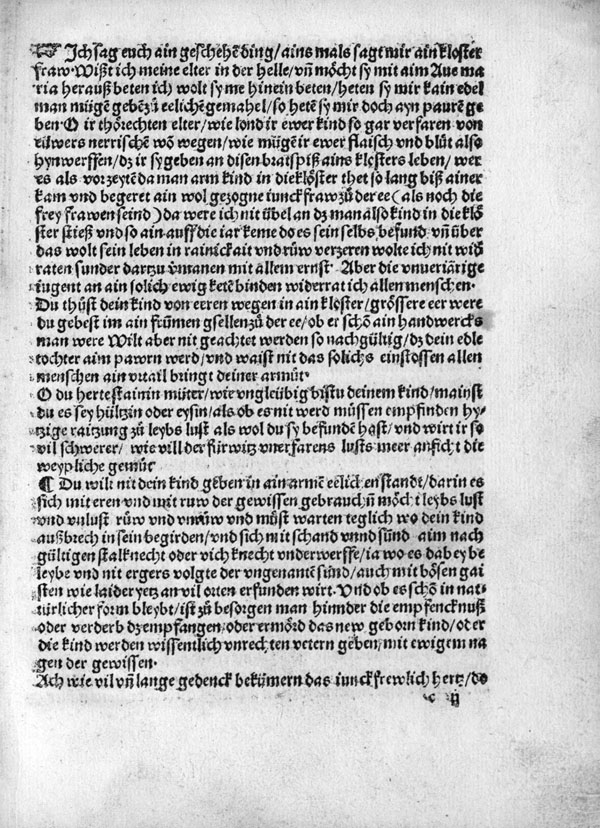 ☞ Ich sag euch ain geschehẽ ding/ains mals sagt mir ain kloster
fraw·Wißt ich meine elter in der helle/vñ möcht sy mit aim Aue ma
ria herauß beten ich wolt sy me hinein beten/heten sy mir kain edel
man mügẽ gebẽ zů eelichẽ gemahel/so hetẽ sy mir doch ayn paurẽ ge
ben·O ir thörechten elter/wie lond ir ewer kind so gar verfaren von
eüwers nerrischẽ wõ wegen/wie mügẽ ir ewer flaisch vnd blůt also
hynwerffen/dz ir sy geben an disen bratspiß ains klosters leben/wer
es als vor zeytẽ da man arm kind in die klöster thet so lang biß ainer
kam vnd begeret ain wol gezogne iunckfraw zů der ee(als noch die
frey frawen seind)da were ich nit übel an dz man also kind in die klö
ster stieß vnd so ain auff die iar keme do es sein selbs befund vñ über
das wolt sein leben in rainickait vnd rüw verzeren wolte ich nit widẽ
raten sunder dartzu v̈manen mit allem ernst· Aber die vnueriärige
iugent an ain solich ewig ketẽ binden widerrat ich allen menschen·
Du thůst dein kind von eeren wegen in ain kloster/grössere eer were
du gebest im ain frümen gsellen zů der ee/ob er schõ ain handwercks
man were Wilt aber nit geachtet werden so nachgültig/dz dein edle
tochter aim pawrn werd/vnd waist nit das solichs einstossen allen
menschen ain vrtail bringt deiner armůt·
O du hertestainin můter/wie vngleübig bistu deinem kind/mainst
du es sey hültzin oder eysin/als ob es nit werd müssen empfinden hy⸗
tzige raitzung zů leybs lust als wol du sy befunden hast/vnd wirt ir so
vil schwerer/ wie vill der fürwitz vnerfarens lusts meer anficht die
weypliche gemüt
¶ Du wilt nit dein kind geben in ain armẽ eelichen standt/darin es
sich mit eren vnd mit ruw der gewissen gebrauchẽ möcht leybs lust
vnd vnlust rüw vnd vnrüw vnd můst warten teglich wo dein kind
außbrech in sein begirden/vnd sich mit schand vnnd sünd aim nach
gültigen stalknecht oder vich knecht vnderwerffe/ia wo es dabey be
leybe vnd nit ergers volgte der vngenantẽ sünd/auch mit bösen gai
sten wie laider yetz an vil orten erfunden wirt·Vnd ob es schõ in nat⸗
türlicher form bleybt/ist zů besorgen man hinnder die empfencknuß
oder verderb dz empfangen/oder ermörd das new geborn kind/oder
die kind werden wissentlich vnrechten vetern geben/mit ewigem na
gen der gewissen·
Ach wie vil vñ lange gedenck bekümern das iunckfrewlich hertz/do
c ij